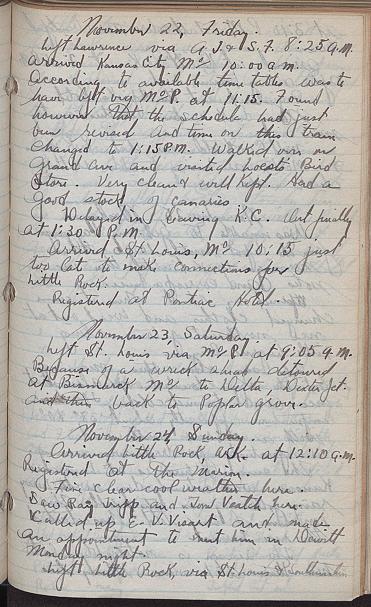 November 22, Friday.
Left Lawrence via A.T. & S.F. 8:25 A.M.
Arrived Kansas City, Mo 10:00 a.m.
According to available time tables was to
have left via Mo P. at 11:15. Found
however that the schedule had just
been revised and time on this train
changed to 1:15 P.M. Walked over on
Grand ave and visited Bird
Store. Very clean & well kept. Had a
good stock of canaries.
Delayed in leaving K.C. but finally
at 1:30 P.M.
Arrived St Louis, Mo. 10:15 just
too late to make connections for
Little Rock.
Registered at Pontiac Hotel.
November 23 Saturday.
Left St. Louis via Mo P. at 9:05 A.M.
Because of a wreck was detoured
at Bismarck Mo to Delta, Dexter Jct.
and then back to Poplar grove.
November 24 Sunday.
Arrived Little Rock, Ark. at 12:10 a.m.
Registered at the Marion.
Fine clear cool weather here.
Saw Ray and Tom Veatch here.
Called up E. V. Visart and made
an appointment to meet him in Dewitt
Monday night.
Left Little Rock, via St. Louis & Southwestern